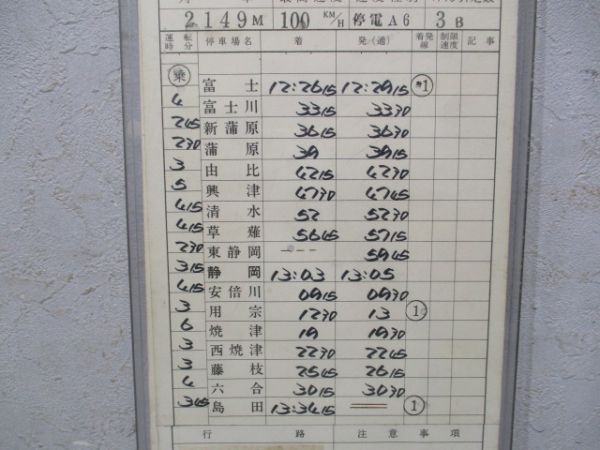 2149M 100 KM/H 停電A6 3B
運転時分 停車場名 着 発(通) 着発線 制限速度 記事
乗 富士 12:2615 12:2915 1
4 富士川 3315 3330
245 新蒲原 3615 3630
230 蒲原 39 3915
3 由比 4215 4230
5 興津 4730 4745
415 清水 52 5230
415 草薙 5645 5715
230 東静岡 --- 5945
315 静岡 13:03 13:05
415 安倍川 0915 0930
3 用宗 1230 13 1
6 焼津 19 1930
3 西焼津 2230 2245
3 藤枝 2545 2615
4 六合 3015 3030
345 島田 13:3415 1
行路 注意事項